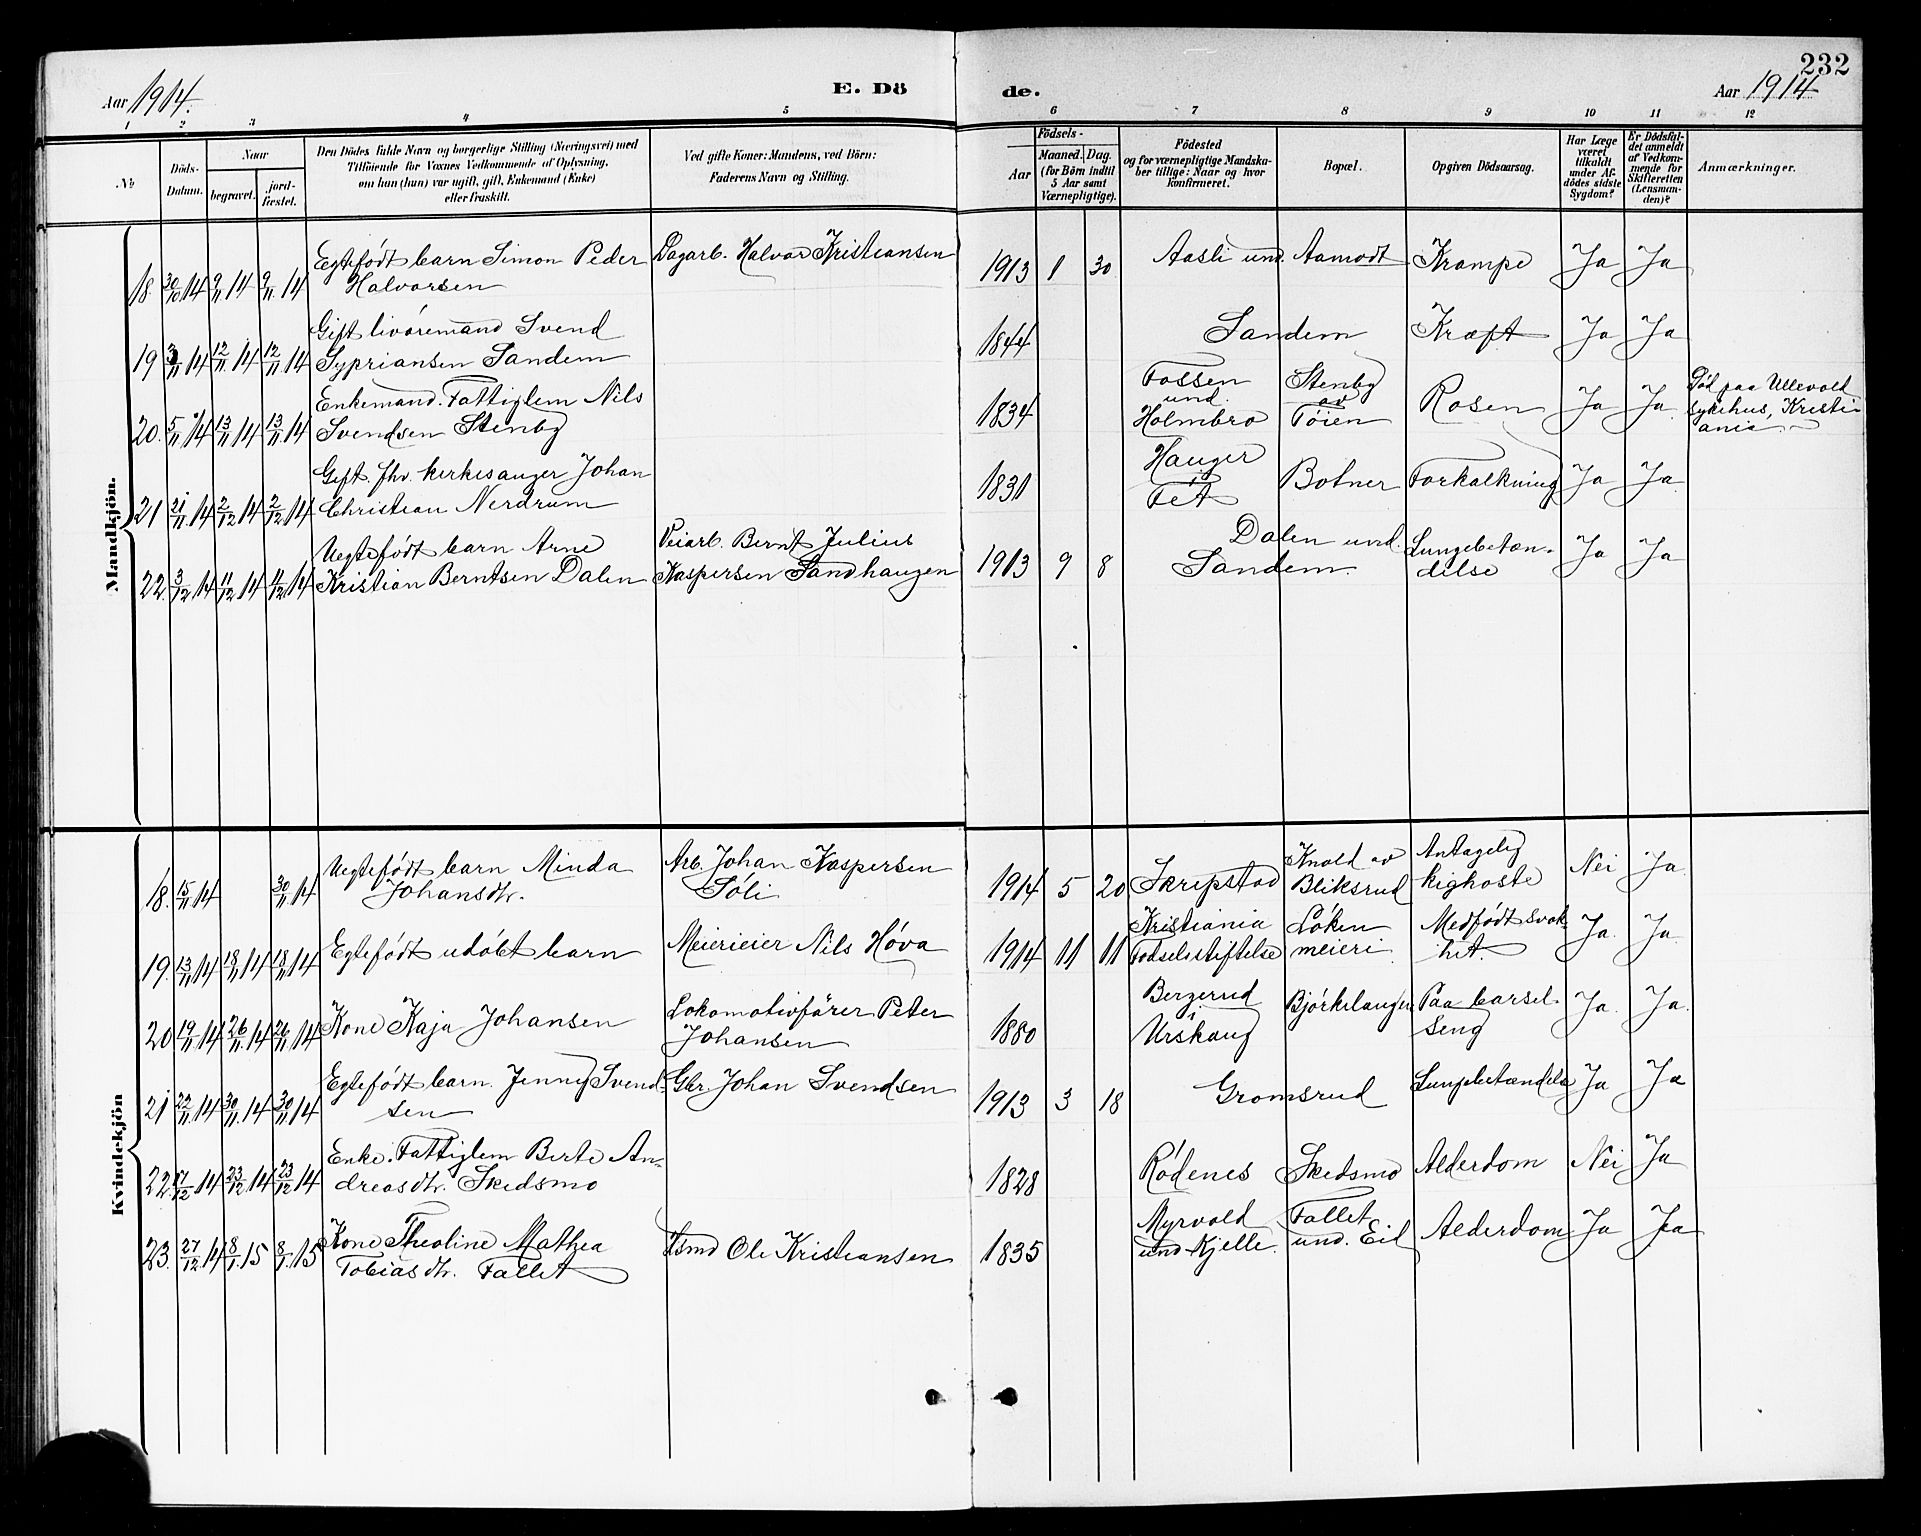 232
Aar 1914.
E. Dö
de.
Aar 1914
1 2 3 4 5 6 7 8 9 10 11 12
№
Döds-Datum.
Naar
begravet.
jord-fæstet.
Den Dödes fulde Navn og borgerlige Stilling (Næringsvei) med
Tilföiende for Voxnes Vedkommende af Oplysning,
om han (hun) var ugift, gift, Enkemand (Enke)
eller fraskilt.
Ved gifte Koner: Mandens, ved Börn:
Faderens Navn og Stilling.
Födsels-
Aar
Maaned. Dag.
(for Börn indtil
5 Aar samt
Værnepligtige).
Födested
og for værnepligtige Mandska-
ber tillige: Naar og hvor
konfirmeret.
Bopæl.
Opgiven Dödsaarsag.
Har Læge
været
tilkaldt
under Af-
dödes sidste
Sygdom?
Er Dödsfal-
det anmeldt
af Vedkom-
mende for
Skifteretten
(Lensman-
den)?
Anmærkninger.
Mandkjön.
Egtefödt barn Simon Peder Dagarb. Halvor Kristiansen Aasli und. Aamodt Krampe Ja Ja
18. 30/10 14 9/11 14 9/11 14 Halvorsen 1913 1 30
Gift livöremand Svend Sandem Kræft Ja Ja
19 3/11 14 12/11 14 12/11 14 Sypriansen Sandem 1844
Enkemand. Fattiglem Nils Fossen Stenby Rosen Ja Ja Död paa Ullevold
und. av sykehus, Kristi-
20. 5/11 14 13/11 14 13/11 14 Svendsen Stenby 1834 Holmbro Töien ania.
Gift. fhv. kirkesanger Johan Hauger Botner Forkalkning Ja Ja
i
21 21/11 14 2/12 14 2/12 14 Christian Nerdrum 1831 Fet
Uegtefödt barn Arne Veiarb. Bernt Julius Dalen und. Lungebetæn- Ja Ja
22. 3/12 14 11/12 14 11/12 14 Kristian Berntsen Dalen Kaspersen Sandhaugen 1913 9 8 Sandem. delse
Kvindekjön
Uegtefödt barn Minda Arb. Johan Kaspersen Knold av Antagelig Nei Ja
18. 15/11 14 30/11 14 Johansdtr. Söli 1914 5 20 Skripstad Bliksrud kighoste
Egtefödt udöbt barn Meierieier Nils Höva Kristiania Löken Medfödt svak- Ja Ja
19. 13/11 14 18/11 14 18/11 14 1914 11 11 Födselsstiftelse meieri het.
Kone Kaja Johansen Lokomotivförer Peter Bergerud Bjórkelangen Paa barsel- Ja Ja
i
20 19/11 14 26/11 14 26/11 14 Johansen 1880 Urskaug seng
Egtefödt barn. Jenny Svend- Gbr. Johan Svendsen Gromsrud Lungebetændelse Ja Ja
21 22/11 14 30/11 14 30/11 14 sen 1913 3 18
Enke. Fattiglem Berte An- Rödenes Skedsmo Alderdom Nei Ja
22. 17/12 14 23/12 14 23/12 14 dreasdtr. Skedsmo 1828
Kone Theoline Mathea Hsmd Ole Kristiansen Myrvold Fallet Alderdom Ja Ja
23. 27/12 14 8/1 15 8/1 15 Tobiasdtr. Fallet 1835 und Kjelle. und. Eid